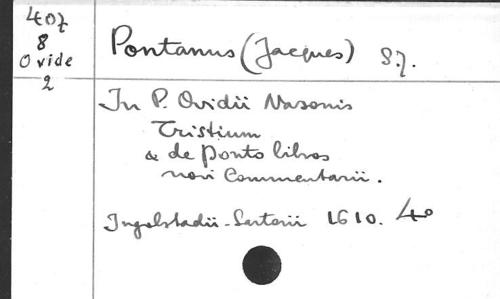 407
8
Ovide
2
Pontanus (Jacques) S.J.
In P. Ovidii Nasonis
Tristium
& de Ponto libros
novi Commentarii.
Ingolstadii - Sartorii 1610. 4o